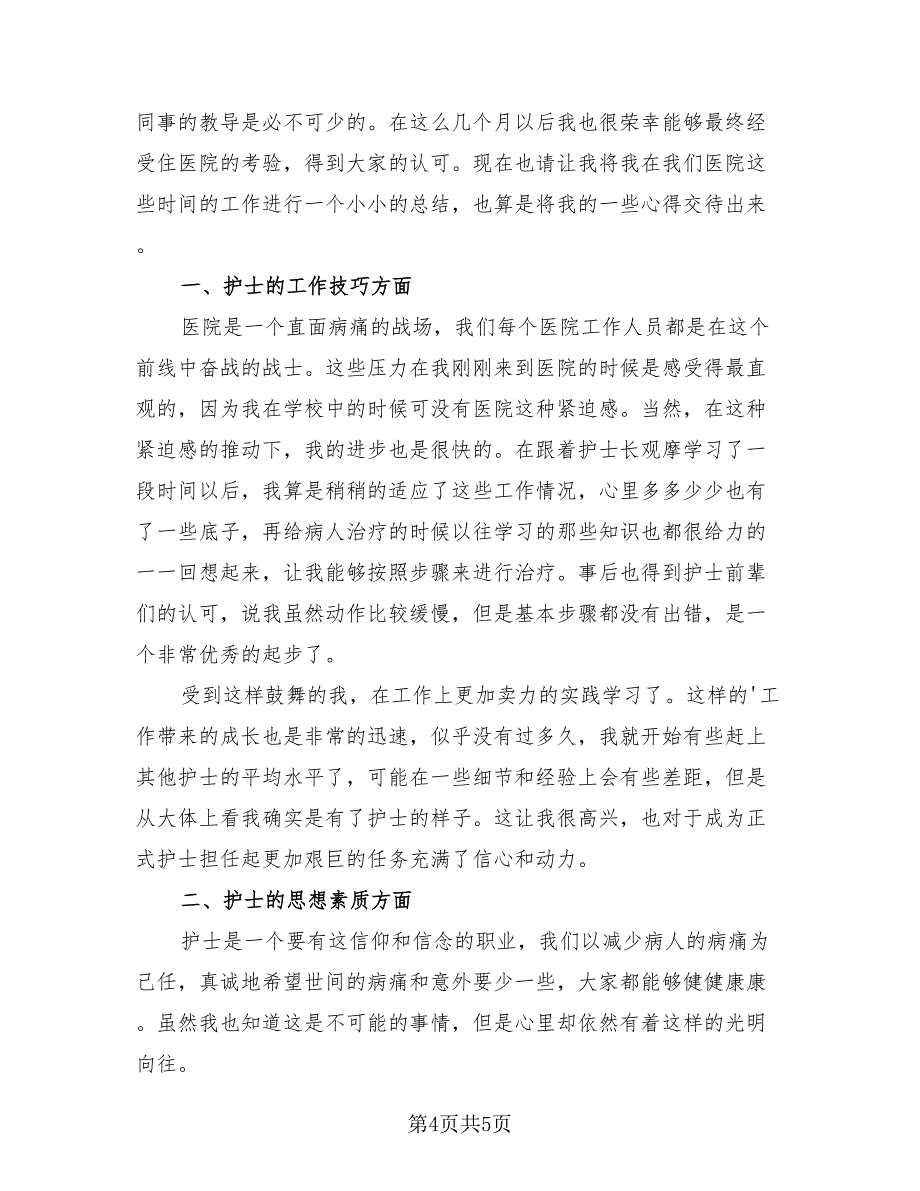 同事的教导是必不可少的。在这么几个月以后我也很荣幸能够最终经
受住医院的考验，得到大家的认可。现在也请让我将我在我们医院这
些时间的工作进行一个小小的总结，也算是将我的一些心得交待出来
。
一、护士的工作技巧方面
医院是一个直面病痛的战场，我们每个医院工作人员都是在这个
前线中奋战的战士。这些压力在我刚刚来到医院的时候是感受得最直
观的，因为我在学校中的时候可没有医院这种紧迫感。当然，在这种
紧迫感的推动下，我的进步也是很快的。在跟着护士长观摩学习了一
段时间以后，我算是稍稍的适应了这些工作情况，心里多多少少也有
了一些底子，再给病人治疗的时候以往学习的那些知识也都很给力的
一一回想起来，让我能够按照步骤来进行治疗。事后也得到护士前辈
们的认可，说我虽然动作比较缓慢，但是基本步骤都没有出错，是一
个非常优秀的起步了。
受到这样鼓舞的我，在工作上更加卖力的实践学习了。这样的'工
作带来的成长也是非常的迅速，似乎没有过多久，我就开始有些赶上
其他护士的平均水平了，可能在一些细节和经验上会有些差距，但是
从大体上看我确实是有了护士的样子。这让我很高兴，也对于成为正
式护士担任起更加艰巨的任务充满了信心和动力。
二、护士的思想素质方面
护士是一个要有这信仰和信念的职业，我们以减少病人的病痛为
己任，真诚地希望世间的病痛和意外要少一些，大家都能够健健康康
。虽然我也知道这是不可能的事情，但是心里却依然有着这样的光明
向往。
第4页共5页